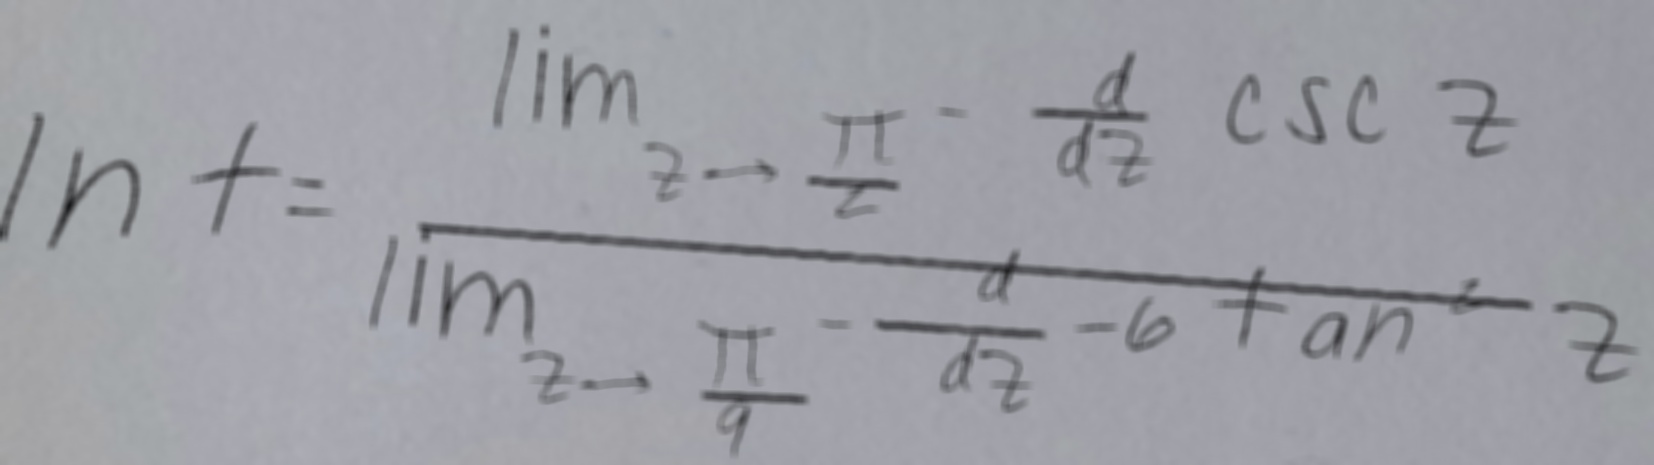 ln t = \frac{\lim_{z \to \frac{\pi}{2}^-} \frac{d}{dz} \csc z}{\lim_{z \to \frac{\pi}{9}^-} \frac{d}{dz} -6 \tan^2 z}